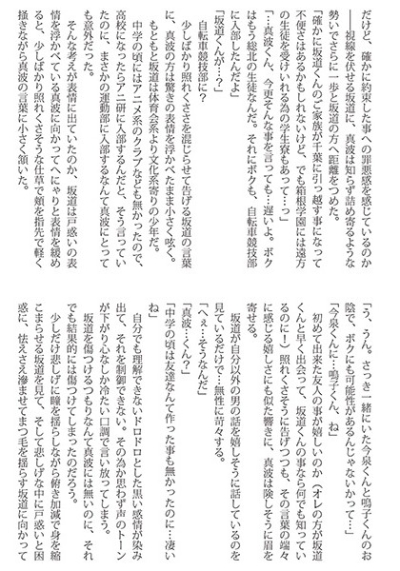 だけど、確かに約束した事への罪悪感を感じているのか
――視線を伏せる坂道に、真波は知らず詰め寄るような
勢いでさらに一歩と坂道の方へ距離をつめた。
「確かに坂道くんのご家族が千葉に引っ越す事になって
不便さはあるかもしれないけど、でも箱根学園には遠方
の生徒を受けいれる為の学生寮もあって…っ」
「…真波くん、今更そんな事を言っても…遅いよ。ボク
はもう総北の生徒なんだ。それにボクも、自転車競技部
に入部したんだよ」
「坂道くんが…？」
自転車競技部に？
少しばかり照れくささを混じらせて告げる坂道の言葉
に、真波の方は驚きの表情を浮かべたまま小さく呟く。
もともと坂道は体育会系より文化系寄りの少年だ。
中学の頃にはアニメ系のクラブなども無かったので、
高校になったらアニ研に入部するんだと、そう言ってい
たのに、まさかの運動部に入部するなんて真波にとって
も意外だった。
そんな考えが表情に出ていたのか、坂道は戸惑いの表
情を浮かべている真波に向かってへにゃりと表情を緩め
ると、少しばかり照れくさそうな仕草で頬を指先で軽く
掻きながら真波の言葉に小さく頷いた。
「う、うん。さっき一緒にいた今泉くんと鳴子くんのお
陰で、ボクにも可能性があるんじゃないかって…」
「今泉くんに…鳴子くん、ね」
初めて出来た友人の事が嬉しいのか（オレの方が坂道
くんと早く出会って、坂道くんの事なら何でも知ってい
るのに！）照れくさそうに告げつつも、その言葉の端々
に感じる嬉しさにも似た響きに、真波は険しそうに眉を
寄せる。
坂道が自分以外の男の話を嬉しそうに話しているのを
見ているだけで…無性に苛々する。
「へぇ…そうなんだ」
「真波…くん？」
「中学の頃は友達なんて作った事も無かったのに…凄い
ね」
自分でも理解できないドロドロとした黒い感情が染み
出て、それを制御できない。その為か思わず声のトーン
が下がり心なしか冷たい口調で言い放ってしまう。
坂道を傷つけるつもりなんて真波には無いのに、それ
でも結果的には傷つけてしまったのだろう。
少しだけ悲しげに瞳を揺らしながら俯き加減で身を縮
こまらせる坂道を見て、そして悲しげな中に戸惑いと困
惑に、怯えさえ滲ませてまつ毛を揺らす坂道に向かって